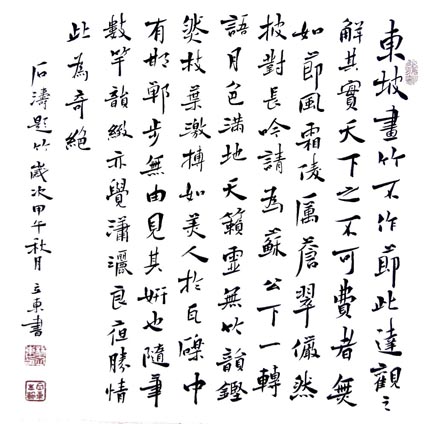 東坡畫竹不作節此達觀之
解其實天下之不可費者無
如節風霜凌厲蒼翠儼然
披對長吟請為蘇公下一轉
語月色滿地天籟靈無竹韻鏗
然枝葉激搏如美人於瓦礫中
有邯鄲步無由見其妍也隨筆
數竿韻緻亦覺瀟灑良夜勝情
此為奇絕
石濤題竹歲次甲午秋月立東書